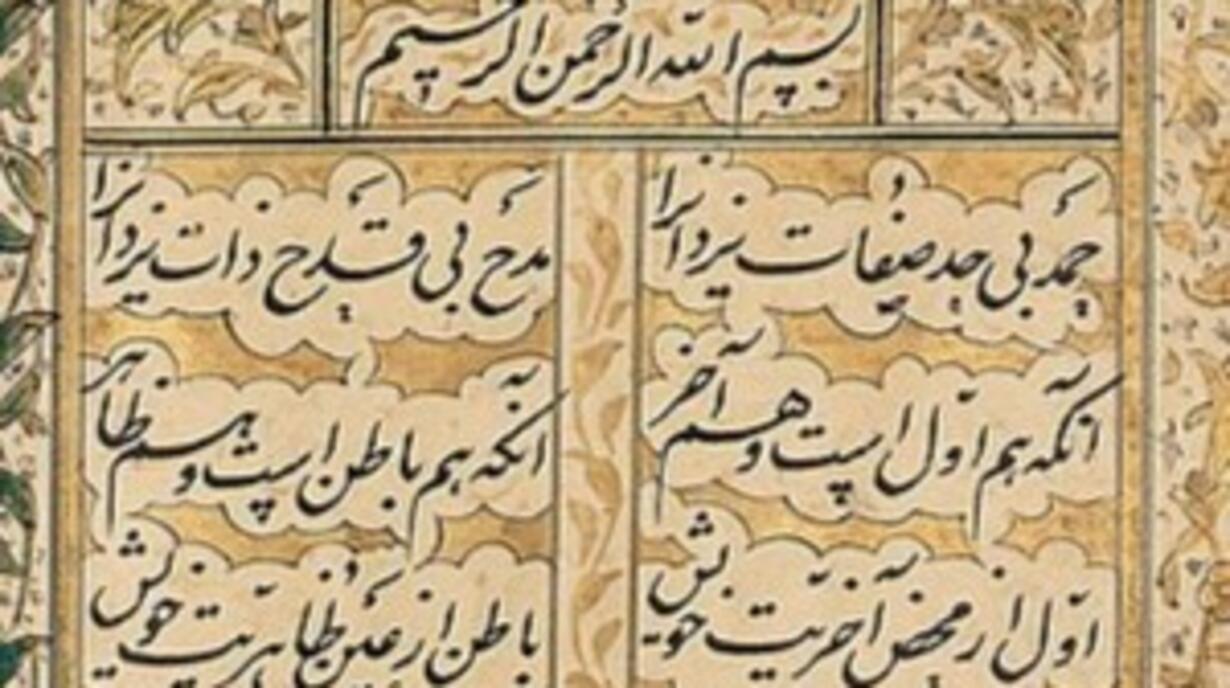 بسم الله الرحمن الرحیم
حمد بی حد صفات یزدانرا
مدح بی قدح ذات یزدانرا
آنکه هم اول است و هم آخر
آنکه هم باطن است و هم ظاهر
اول از محض آخریت خویش
باطن از عین ظاهریت خویش